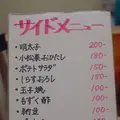 サイドメニュー
・明太子 200-
・小松菜おひたし 180-
・ポテトサラダ 150-
・しらすおろし 150-
・玉子焼 100-
・もずく酢 100-
・納豆